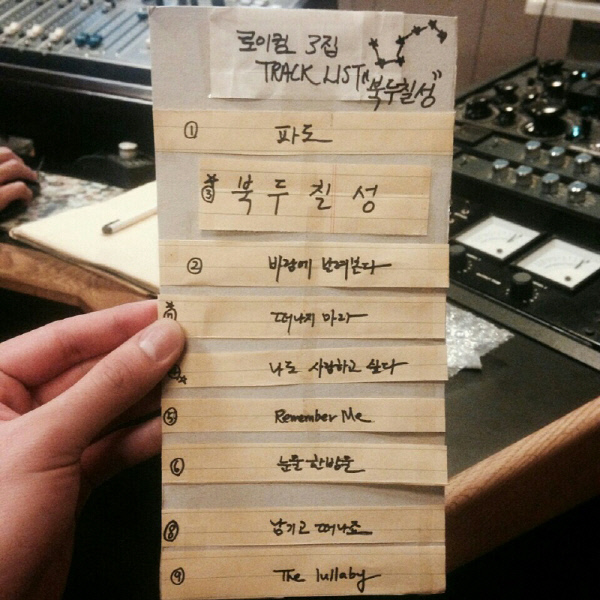 로이킴 3집
TRACK LIST "북두칠성"
① 파도
③ 북두칠성
② 바람에 날려본다
⑦ 떠나지 마라
④ 나도 사랑하고 싶다
⑤ Remember Me
⑥ 눈물 한방울
⑧ 남기고 떠나죠
⑨ The lullaby